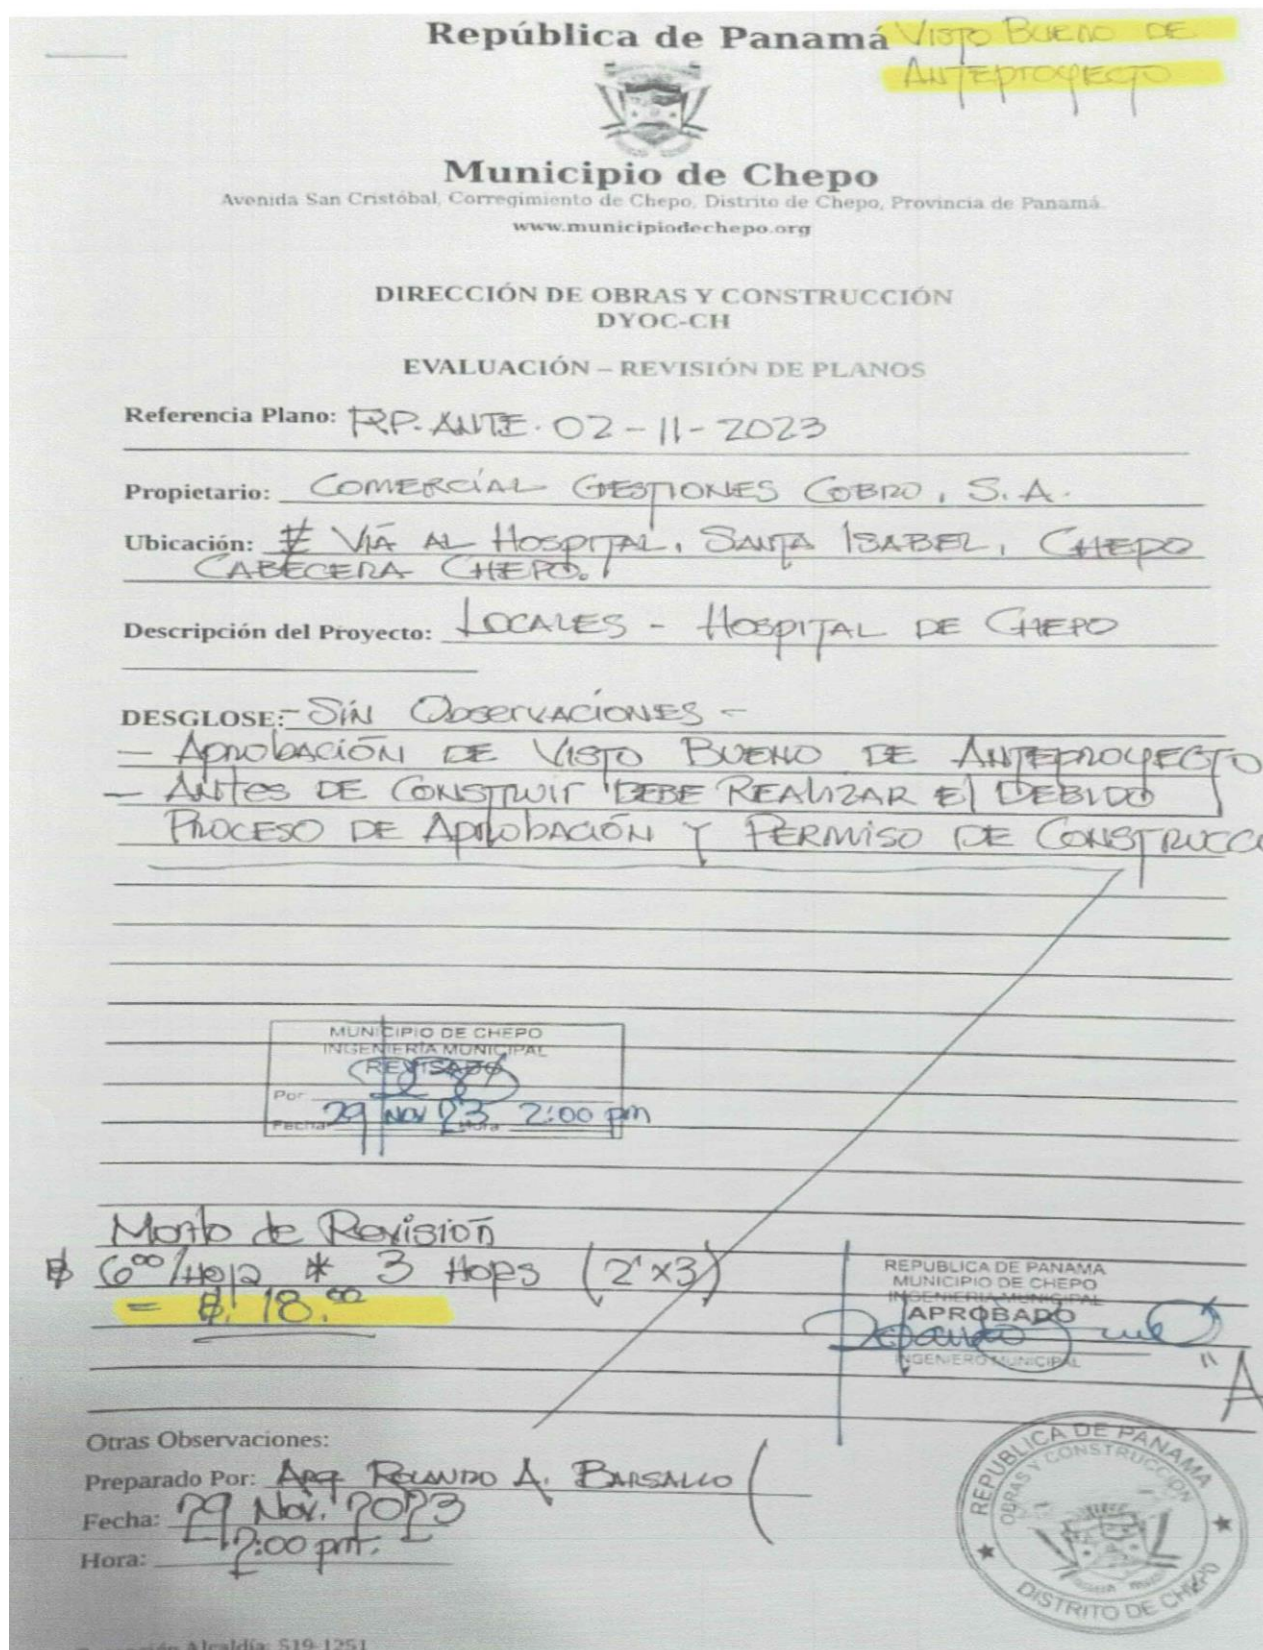 República de Panamá
VISTO BUENO DE
ANTEPROYECTO
Municipio de Chepo
Avenida San Cristóbal, Corregimiento de Chepo, Distrito de Chepo, Provincia de Panamá.
www.municipiodechepo.org
DIRECCIÓN DE OBRAS Y CONSTRUCCIÓN
DYOC-CH
EVALUACIÓN – REVISIÓN DE PLANOS
Referencia Plano: RP. ANTE. 02-11-2023
Propietario: COMERCIAL GESTIONES COBRO, S.A.
Ubicación: VÍA AL HOSPITAL, SANTA ISABEL, CHEPO
CABECERA CHEPO.
Descripción del Proyecto: LOCALES - HOSPITAL DE CHEPO
DESGLOSE: - SIN OBSERVACIONES -
- APROBACIÓN DE VISTO BUENO DE ANTEPROYECTO
- ANTES DE CONSTRUIR DEBE REALIZAR El DEBIDO
PROCESO DE APROBACIÓN Y PERMISO DE CONSTRUCC
MUNICIPIO DE CHEPO
INGENIERÍA MUNICIPAL
REVISADO
Por
Fecha 29 NOV 23 Hora 2:00 pm
Monto de Revisión
B 6.00/Hoja * 3 Hojas (2'x3')
= B/. 18.00
REPUBLICA DE PANAMA
MUNICIPIO DE CHEPO
INGENIERIA MUNICIPAL
APROBADO
INGENIERO MUNICIPAL
"A
Otras Observaciones:
Preparado Por: ARQ ROLANDO A. BARSALLO
Fecha: 29 Nov. 2023
Hora: 2:00 pm.
REPUBLICA DE PANAMA
OBRAS Y CONSTRUCCIÓN
DISTRITO DE CHEPO
Alcaldía: 519-1251